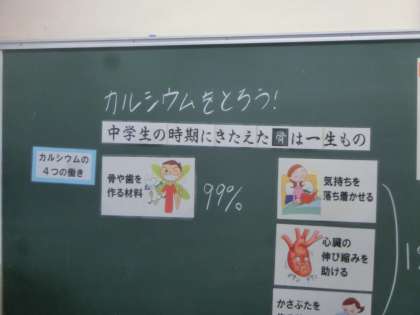 カルシウムをとろう!
中学生の時期にきたえた骨は一生もの
カルシウムの
4つの働き
骨や歯を
作る材料
99%
気持ちを
落ち着かせる
心臓の
伸び縮みを
助ける
かさぶたを